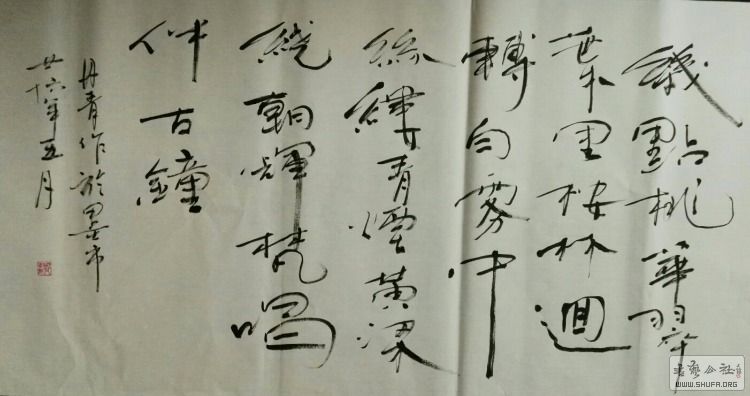 幾點桃華翠
葉里桉林迴
轉白雾中
絲縷青煙黃梁
繞朝煇梵唱
伴古鐘
丹青作於墨市
廿六年五月
书藝公社
WWW.SHUFA.ORG